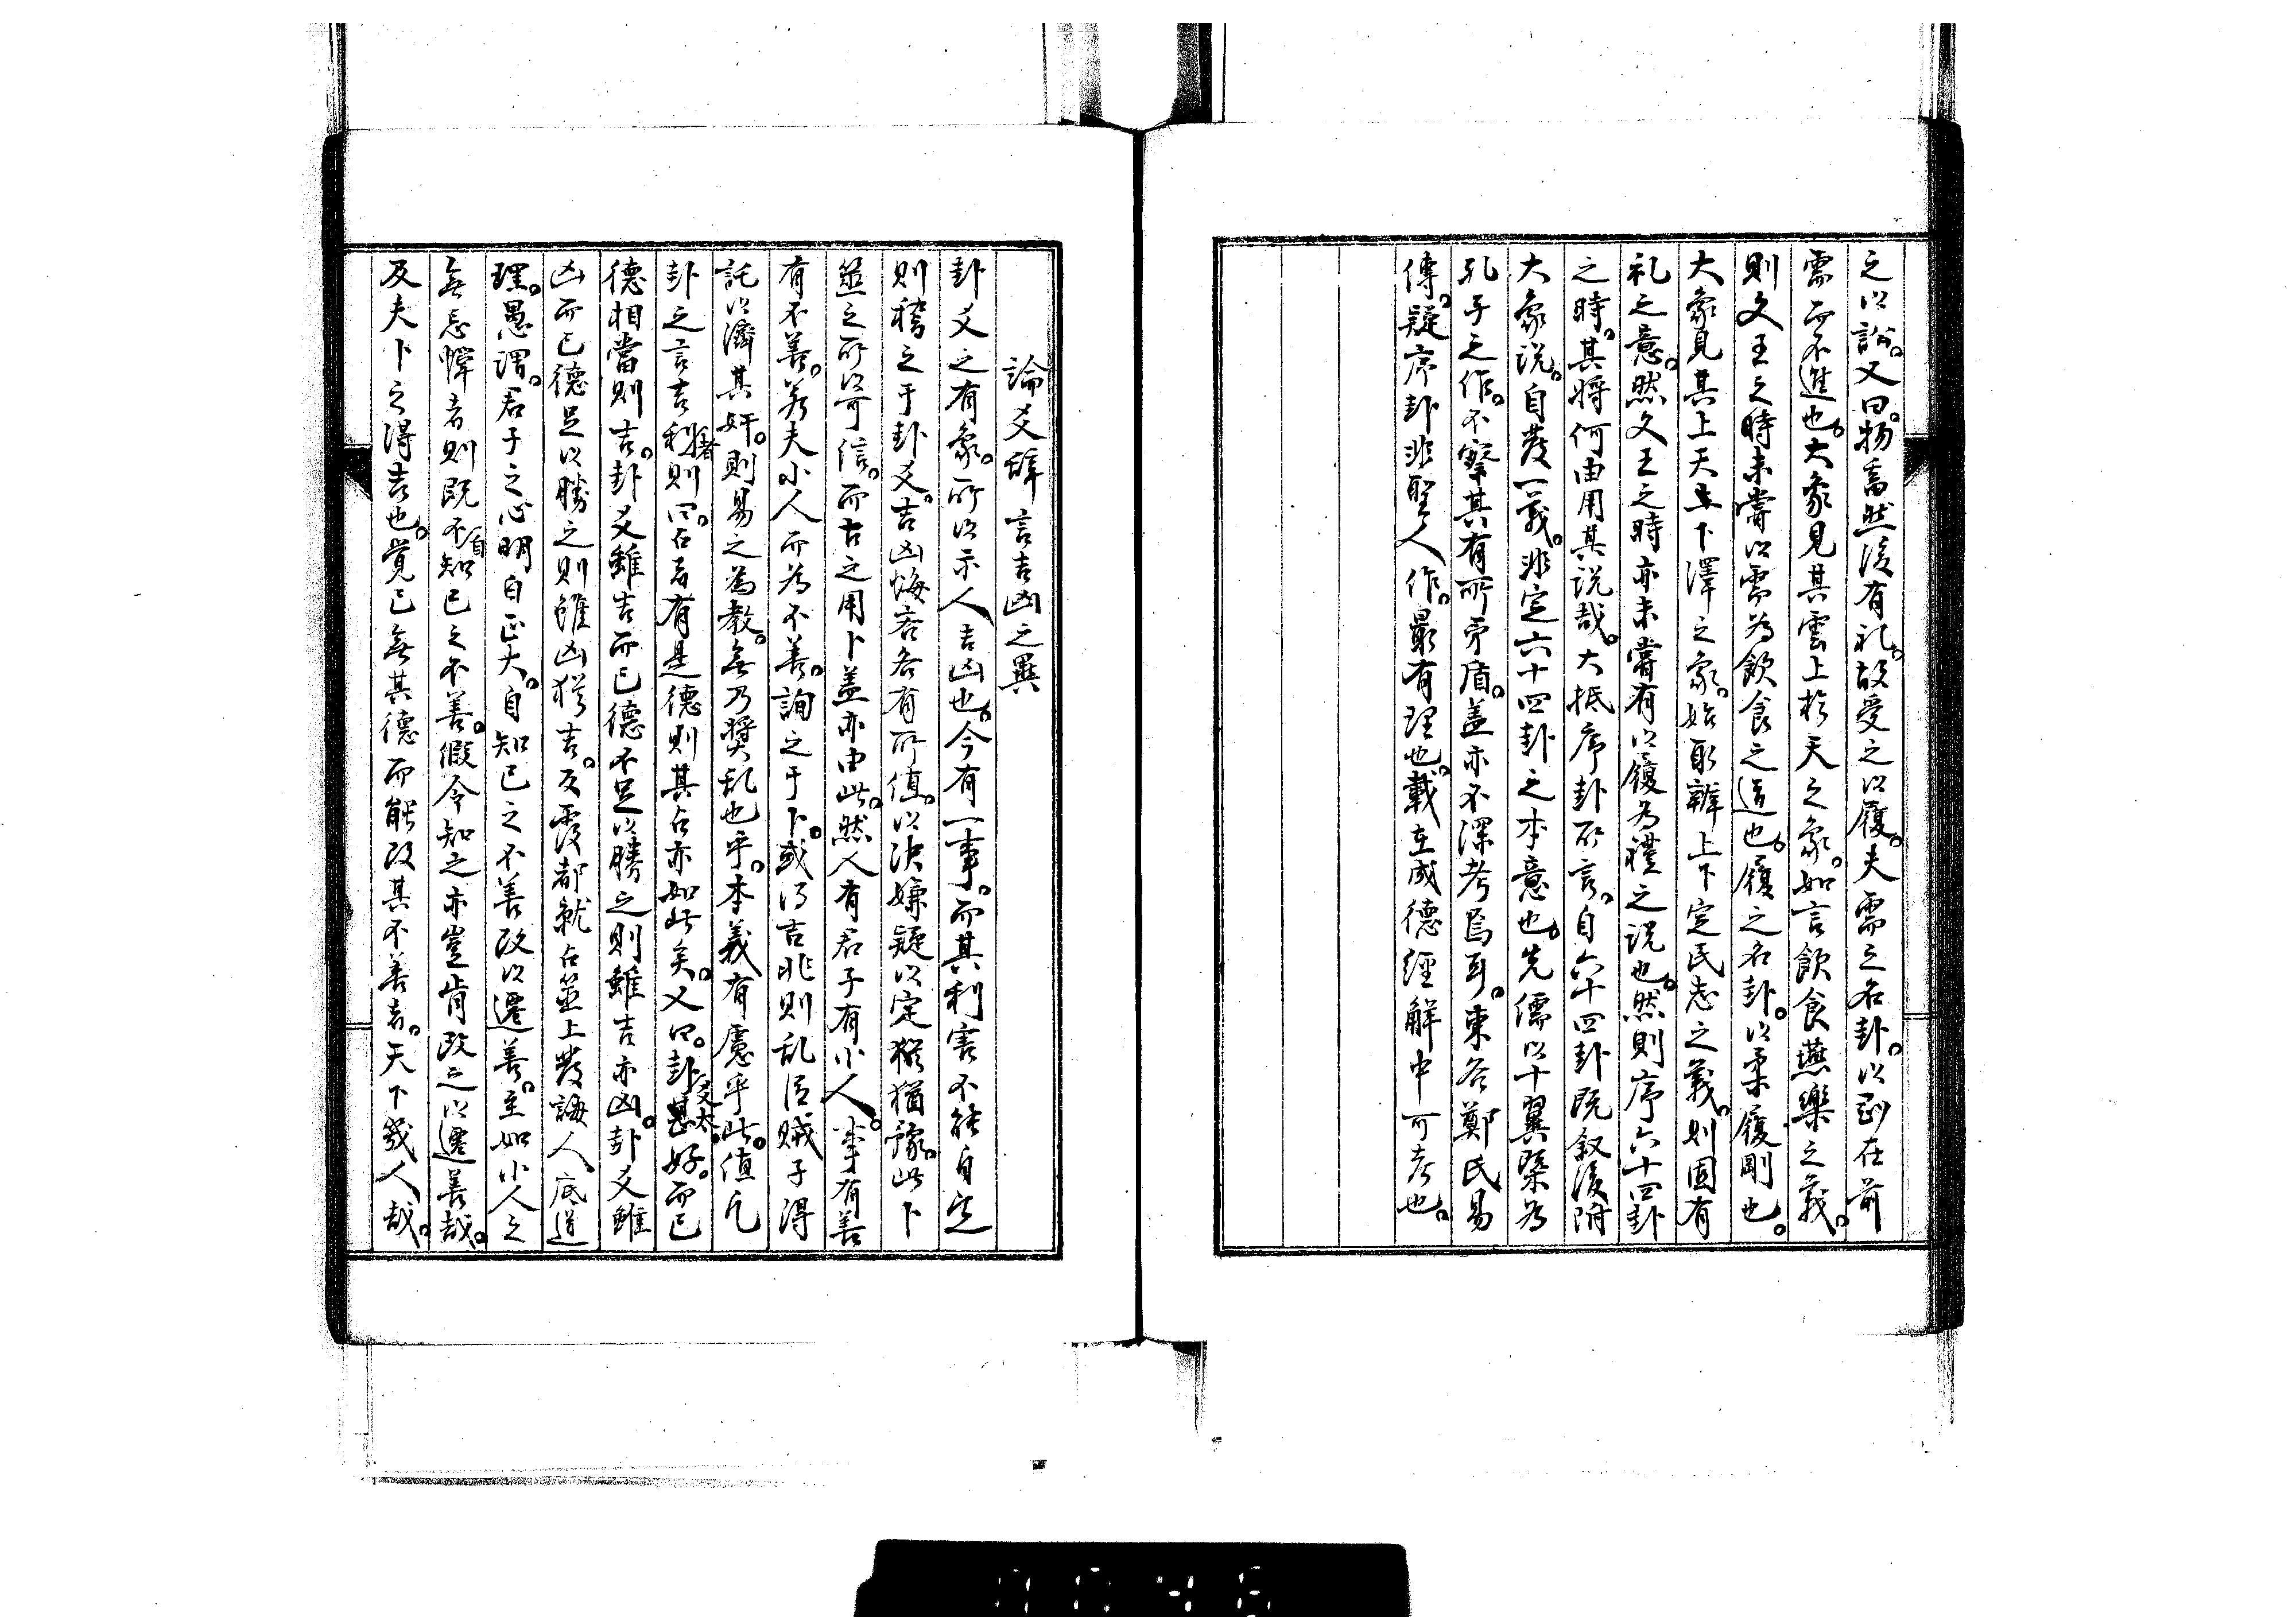 之以訟。又曰。物畜然後有礼。故受之以履。夫需之名卦。以剛在前
需而不進也。大象見其雲上於天之象。如言飲食燕樂之義。
則文王之時未嘗以需為飲食之道也。履之名卦。以柔履剛也。
大象見其上天下澤之象。始取辨上下定民志之義。則固有
礼之意。然文王之時亦未嘗有以履為禮之説也。然則序六十四卦
之時。其将何由用其説哉。大抵序卦所言。自六十四卦既叙後附
大象説。自發一義。非定六十四卦之本意也。先儒以十翼槩為
孔子之作。不察其有所矛盾。盖亦不深考焉耳。東谷鄭氏易
傳。疑序卦非聖人作。最有理也。載在成德經解中可考也。
論爻辭言吉凶之異
卦爻之有象。所以示人吉凶也。今有一事。而其利害不能自定
則稽之于卦爻。吉凶悔吝各有所值。以決嫌疑以定猶豫。此卜
筮之所以可信。而古之用卜盖亦由此。然人有君子有小人。事有善
有不善。若夫小人而為不善。詢之于卜。或得吉兆則乱臣賊子得
託以濟其奸。則易之為教。無乃奨乱也乎。本義有慮乎此。值凡
卦之言吉利者則曰。占者有是德則其占亦如此矣。又曰。卦爻太甚好。而己
德相當則吉。卦爻雖吉而己德不足以勝之則雖吉亦凶。卦爻雖
凶而己德足以勝之則雖凶猶吉。反覆都就占筮上發誨人底道
理。愚謂。君子之心明白正大。自知己之不善改以遷善。至如小人之
無忌憚者則既不自知己之不善。假令知之亦豈肯改之以遷善哉。
及夫卜之得吉也。覚己無其德而能改其不善者。天下幾人哉。